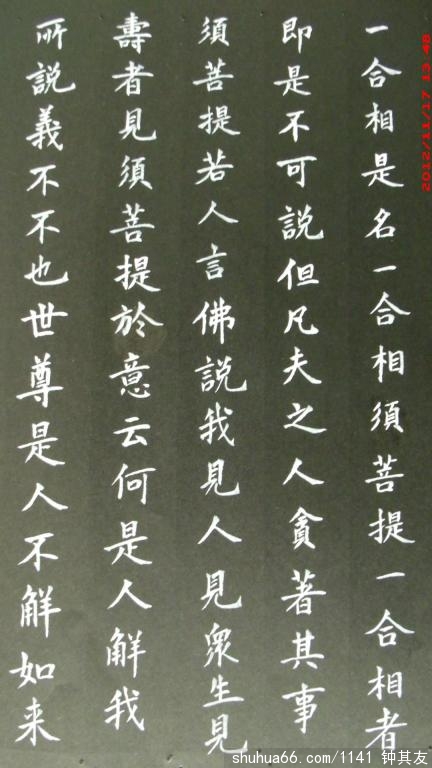 一合相是名一合相須菩提一合相者
即是不可說但凡夫之人貪著其事
須菩提若人言佛說我見人見眾生見
壽者見須菩提於意云何是人解我
所說義不不也世尊是人不解如来
2012/11/17 13:48
shuhua66.com/1141 钟其友